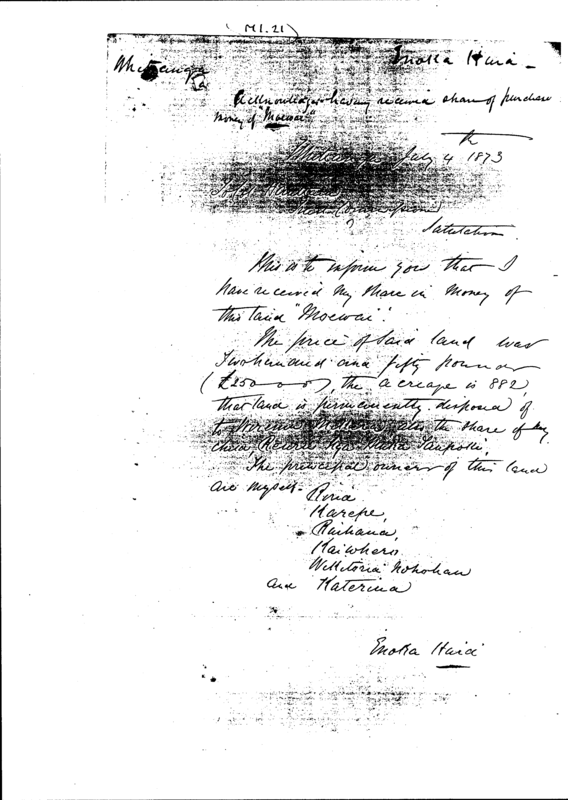 (M1.21)
Enoka Hura -
Acknowledges having received share of purchase
money of "Moewai"
July 4th 1873
Salutations.
This is to inform you that I
have received my share in money of
this land "Moewai".
The price of said land was
Two hundred and fifty pounds
(£250-0-0), the acreage is 882,
that land is permanently disposed of
to the share of my
child,
The principal owners of this land
are myself -
Riria
Karepe,
Raihana,
Kaiwhero.
Wikitoria
and Katerina
Enoka Hura